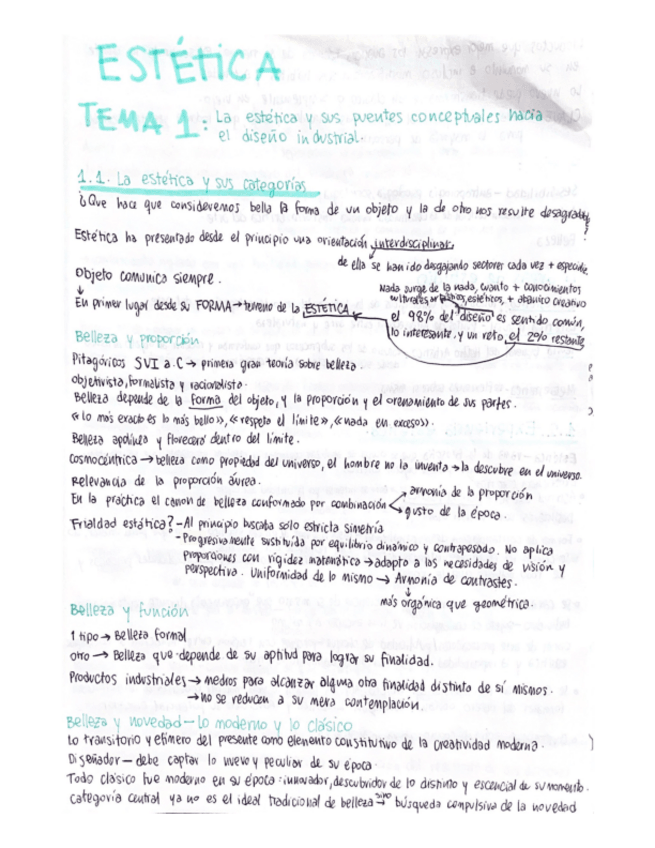 ESTÉTICA
TEMA 1: La estética y sus puentes conceptuales hacia
el diseño industrial.
1.1. La estética y sus categorías
¿Que hace que consideremos bella la forma de un objeto y la de otro nos resulte desagradable
?
Estética ha presentado desde el principio una orientación interdisciplinar.
de ella se han ido desgajando sectores cada vez + específic
Objeto comunica siempre.
Nada surge de la nada, cuanto + conocimientos
culturales, artísticos, estéticos, + abanico creativo
En primer lugar desde su FORMA → terreno de la ESTÉTICA
el 98% del "diseño" es sentido común,
lo interesante, y un reto, el 2% restante
Belleza y proporción
Pitagóricos SVI a.C → primera gran teoría sobre belleza
objetivista, formalista y racionalista.
Belleza depende de la forma del objeto, y la proporción y el orenamiento de sus partes.
«lo más exacto es lo más bello», «respeta el límite», «nada en exceso».
Belleza apolínea y florecerá dentro del límite.
Cosmocéntrica → belleza como propiedad del universo, el hombre no la inventa → la descubre en el universo.
Relevancia de la proporción áurea.
En la práctica el canon de belleza conformado por combinación
armonía de la proporción
gusto de la época.
Frialdad estática? - Al principio buscaba solo estricta simetría
- Progresivamente sustituída por equilibrio dinámico y contrapesado. No aplica
proporciones con rigidez matemática → adapta a las necesidades de visión y
perspectiva. Uniformidad de lo mismo → Armonía de contrastes.
más orgánica que geométrica.
Belleza y función
1 tipo → Belleza formal
otro → Belleza que depende de su aptitud para lograr su finalidad.
Productos industriales → medios para alcanzar alguna otra finalidad distinta de sí mismos.
→ no se reducen a su mera contemplación.
Belleza y novedad - Lo moderno y lo clásico
Lo transitorio y efímero del presente como elemento constitutivo de la creatividad moderna.
Diseñador - debe captar lo nuevo y peculiar de su época.
Todo clásico fue moderno en su época: innovador, descubridor de lo distinto y escencial de su momento.
Categoría central ya no es el ideal tradicional de belleza sino → búsqueda compulsiva de la novedad